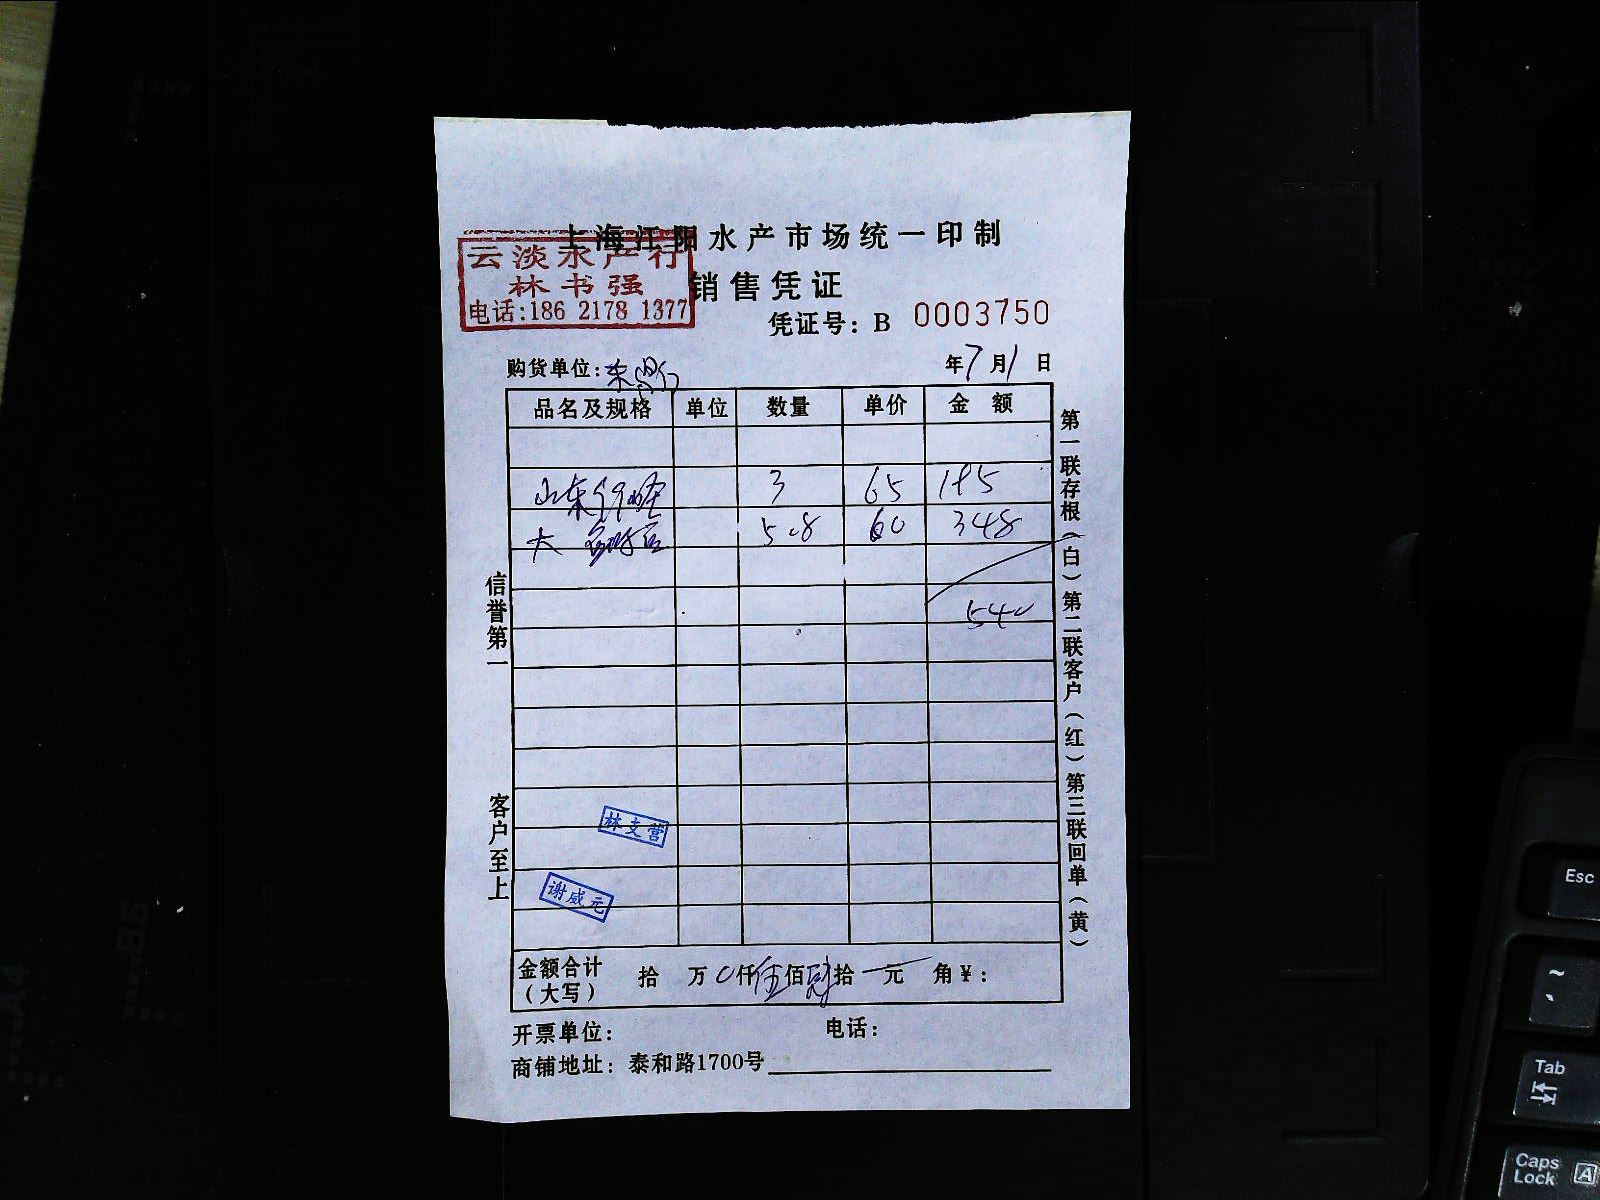 上海江阳水产市场统一印制
云淡水产行
林书强
电话:186 2178 1377
销售凭证
凭证号: B 0003750
购货单位:
年7月1日
品名及规格 单位 数量 单价 金额
山东 3 65 195
大 5.8 60 348
540
第一联存根(白)第二联客户(红)第三联回单(黄)
信誉第一
客户至上
林文营
谢威元
金额合计(大写) 拾 万0仟伍佰肆拾 元 角¥:
开票单位: 电话:
商铺地址: 泰和路1700号
A4
B5
Esc
~
Tab
Caps Lock A